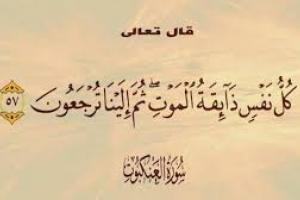 قال تعالى
كُلُّ نَفْسٍ ذَآئِقَةُ الْمَوْتِ ۖ ثُمَّ إِلَيْنَا تُرْجَعُونَ ٥٧
سُورَةُ الْعَنْكَبُوت